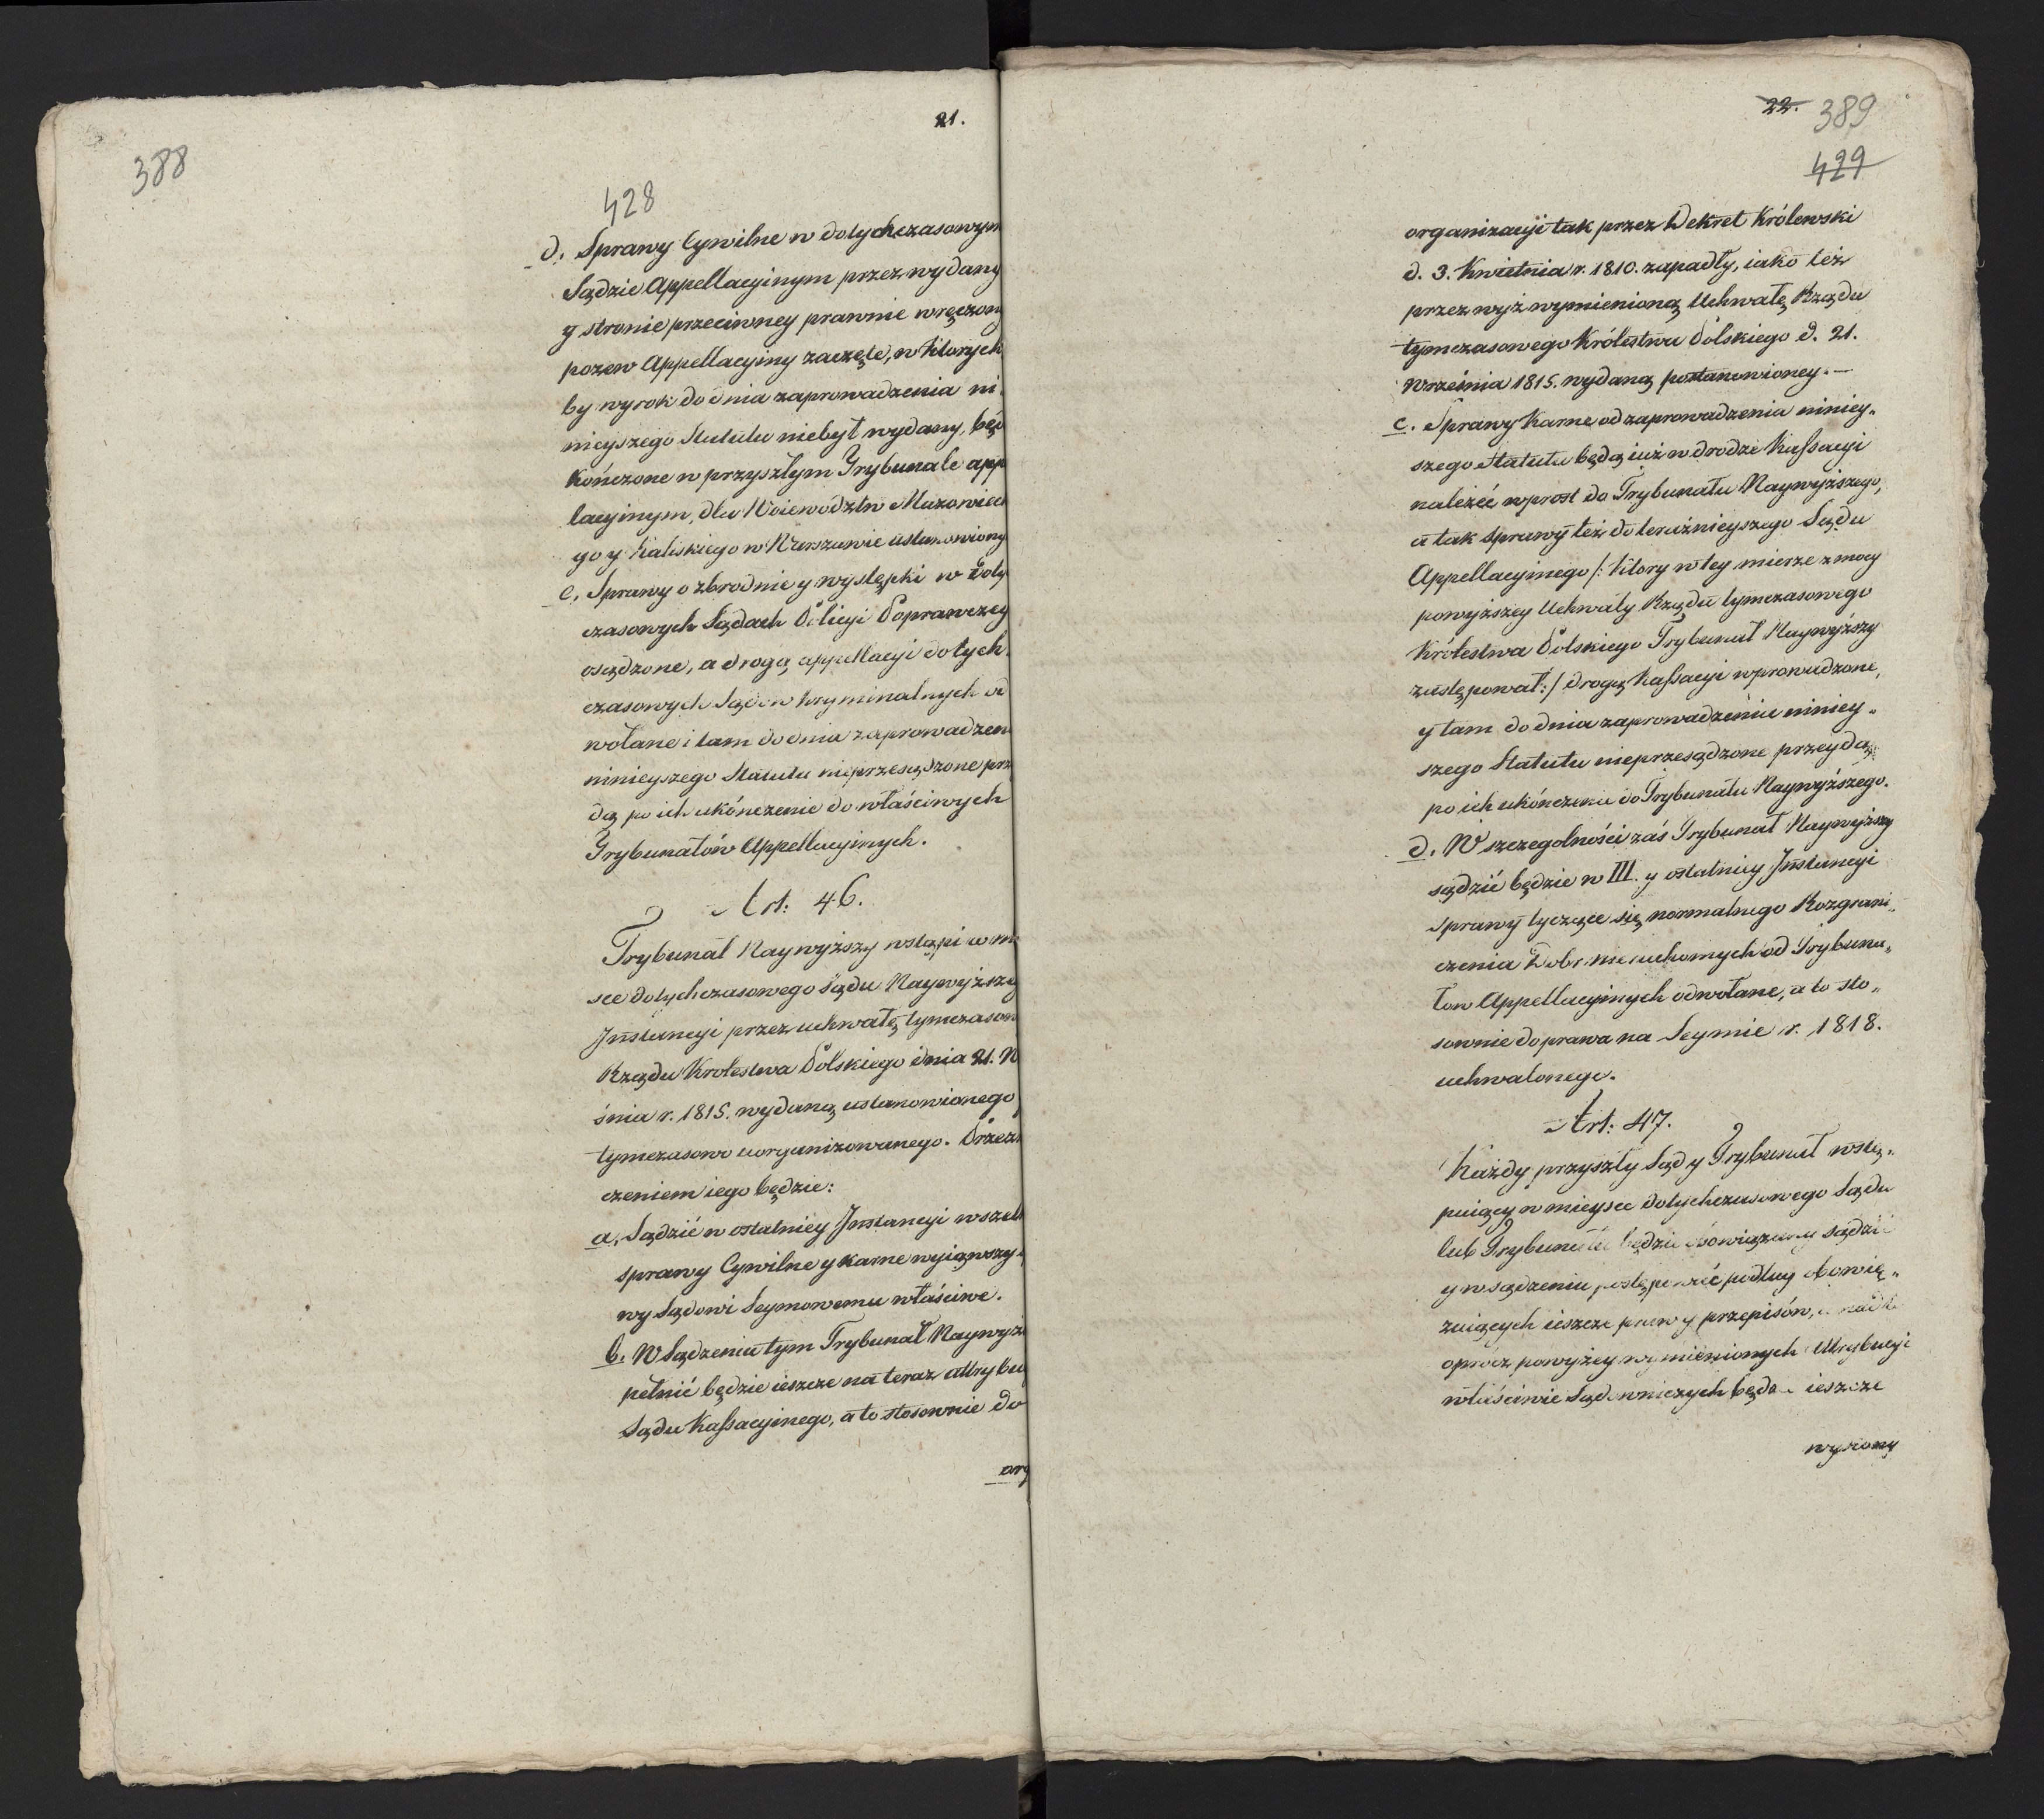 21.
388
428
d. Sprawy Cywilne w dotychczasowym
Sądzie Appellacyinym przez wydany
y stronie przeciwney prawnie wręczony
pozew Appellacyiny zaczęte, w ktorych
by wyrok do dnia zaprowadzenia ni
nieyszego Statutu niebył wydany, będ
kończone w przyszłym Trybunale app
lacyinym, dla Woiewodztw Mazowiec
go y Kaliskiego w Warszawie ustanowiony
e. Sprawy o zbrodnie y występki w doty
czasowych Sądach Policyi Poprawczey
osądzone, a drogą appellacyi dotych
czasowych Sądów kryminalnych od
wołane i tam do dnia zaprowadzen
ninieyszego Statutu nieprzesądzone prz
dą po ich ukończenie do właściwych
Trybunałów Appellacyinych.
Art: 46.
Trybunał Naywyższy wstąpi w mi
sce dotychczasowego Sądu Naywyższey
Jnstancyi przez uchwałę tymczasow
Rządu Krolestwa Polskiego dnia 21. W
śnia r. 1815. wydaną ustanowionego
tymczasowo uorganizowanego. Przezn
czeniem iego będzie:
a. Sądzić w ostatniey Jnstancyi wszel
sprawy Cywilne y karne wyiąwszy
wy Sądowi Seymowemu właściwe.
b. W Sądzeniu tym Trybunał Naywyż
pełnić będzie ieszcze na teraz attrybu
Sądu Kassacyinego, a to stosownie do
org
22. 389
429
organizacyi tak przez Dekret Królewski
d. 3. Kwietnia r. 1810. zapadły, iako też
przez wyż wymienioną Uchwałę Rządu
tymczasowego Królestwa Polskiego d. 21.
Września 1815. wydaną postanowioney. —
c. Sprawy Karne od zaprowadzenia niniey„
szego Statutu będą iuż w drodze Kassacyi
należeć wprost do Trybunału Naywyższego,
a tak sprawy też do teraźnieyszego Sądu
Appellacyinego /: ktory w tey mierze z mocy
powyższey Uchwały Rządu tymczasowego
Królestwa Polskiego Trybunał Naywyższy
zastępował :/ drogą Kassacyi wprowadzone,
y tam do dnia zaprowadzenia niniey„
szego Statutu nieprzesądzone przeydą
po ich ukończeniu do Trybunału Naywyższego.
d. W szczegolności zaś Trybunał Naywyższy
sądzić będzie w III. y ostatniey Jnstancyi
sprawy tyczące się normalnego Rozgrani„
czenia Dobr nieruchomych od Trybuna„
łow Appellacyinych odwołane, a to sto„
sownie do prawa na Seymie r. 1818.
uchwalonego.
Art: 47.
Każdy przyszły Sąd y Trybunał wstę„
puiący w mieysce dotychczasowego Sądu
lub Trybunału będzie obowiązany sądzić
y w sądzeniu postępować podług obowią„
zuiących ieszcze praw y przepisów,
oprócz powyżey wymienionych Attrybucyi
właściwie Sądowniczych będą ieszcze